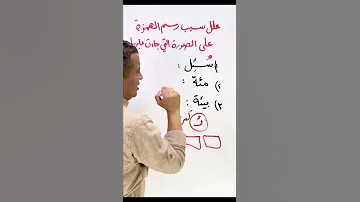 علل سبب رسم الهمزة
على الصورة التي جاءت عليها
١) سُئل :
٢) مئة :
٣) بيئة :